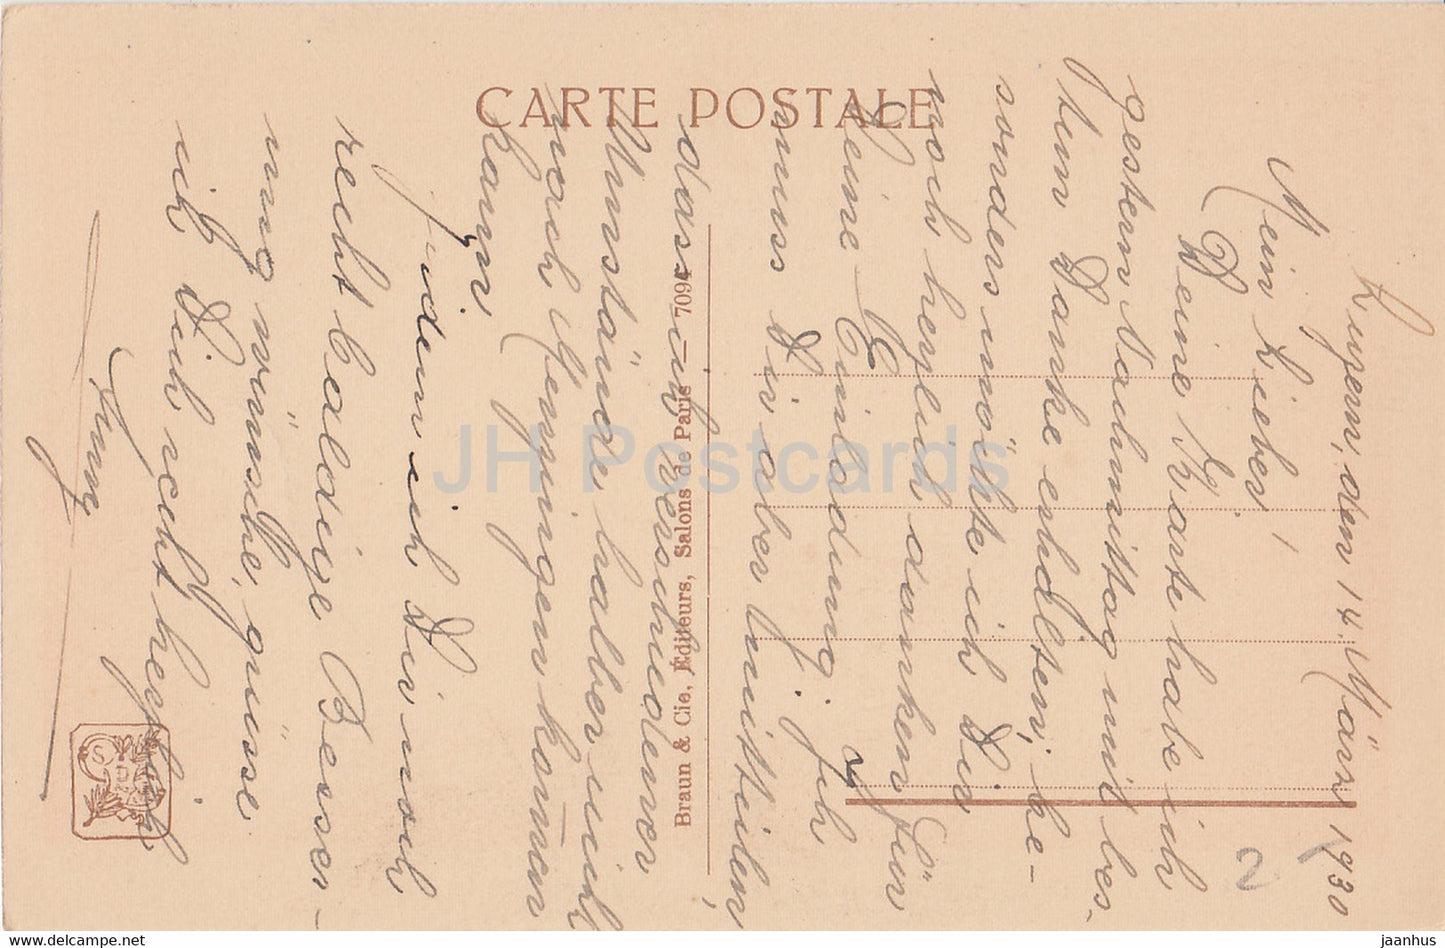 CARTE POSTALE
Braun & Cie, Éditeurs, Salons de Paris — 7094
Luzern, den 14. März 1930
Mein Liebes!
Deine Karte habe ich
gestern Nachmittag mit bes-
tem Danke erhalten, be-
sonders möchte ich Dir
noch herzlich danken für
Deine Einladung. Ich
muss Dir aber mitteilen,
dass ich verschiedener
Umstände halber nicht
nach kommen
kann.
Indem ich Dir noch
recht baldige Besser-
ung wünsche, grüsse
ich Dich recht herzlich
2
JH Postcards
hippostcard.com
jaanhus